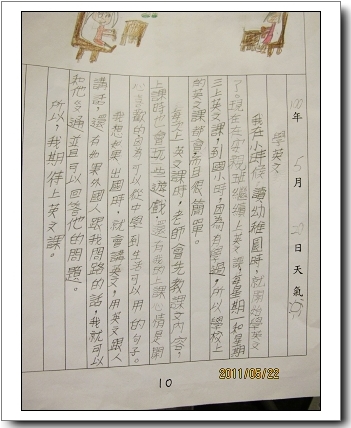 100年 5月 22日 天氣
學英文
我在小時候讀幼稚園時,就開始學英文
了。現在在安親班繼續上英文課,每星期一和星期
三上英文課,到國小時,因為有學過,所以學校上
的英文課都會,而且很簡單。
每次上英文課時,老師會先教課文內容,
上課時也會玩些遊戲。還有我的上課心情是開
心、喜歡的因為可以從中學到生活可以用的句子。
我想如果出國時,就會講英文,用英文跟人
講話,還有如果外國人跟我問路的話,我就可以
和他交通並且可以回答他的問題。
所以,我期待上英文課。
10
2011/05/22